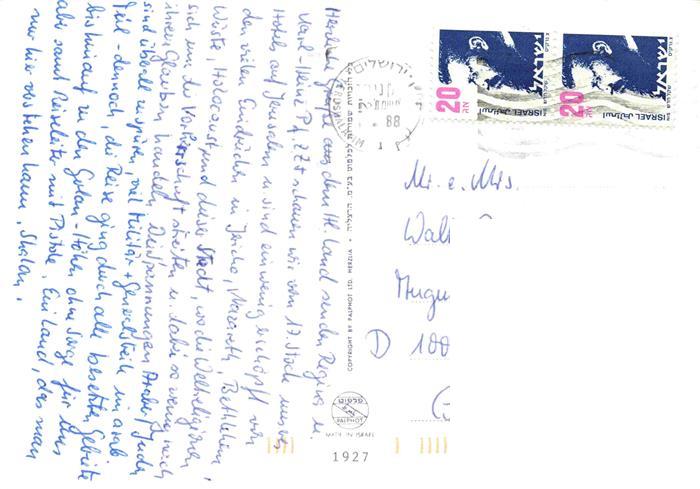 Herzliche Grüße aus dem Hl. Land senden Regina u.
Karl-Heinz P.A. Zt schauen wir vom 17. Stock unseres
Hotels auf Jerusalem u. sind ein wenig erschöpft von
den vielen Eindrücken in Jericho, Nazareth, Bethlehem,
Wüste, Holocaust und dieser Stadt, wo die Weltreligionen
sich um die Vorherrschaft streiten u. dabei so wenig nach
ihrem Glauben handeln. Die Spannungen Araber/Juden
sind überall zu spüren, viel Militär + Generalstreik im arab
Teil - dennoch, die Reise ging durch alle besetzten Gebiete
bis hinauf zu den Golan-Höhen ohne Sorge für uns
aber samt Reiseleiter mit Pistole. Ein Land, das man
nur hier verstehen kann. Shalom,
ישראל
ISRAEL اسرائيل
20
ישראל
ISRAEL اسرائيل
20
ירושלים
JERUSALEM
88
Mr. e. Mrs.
D 100
COPYRIGHTED BY PALPHOT LTD. HERZLIYA
פלפוט
PALPHOT
MADE IN ISRAEL
1927